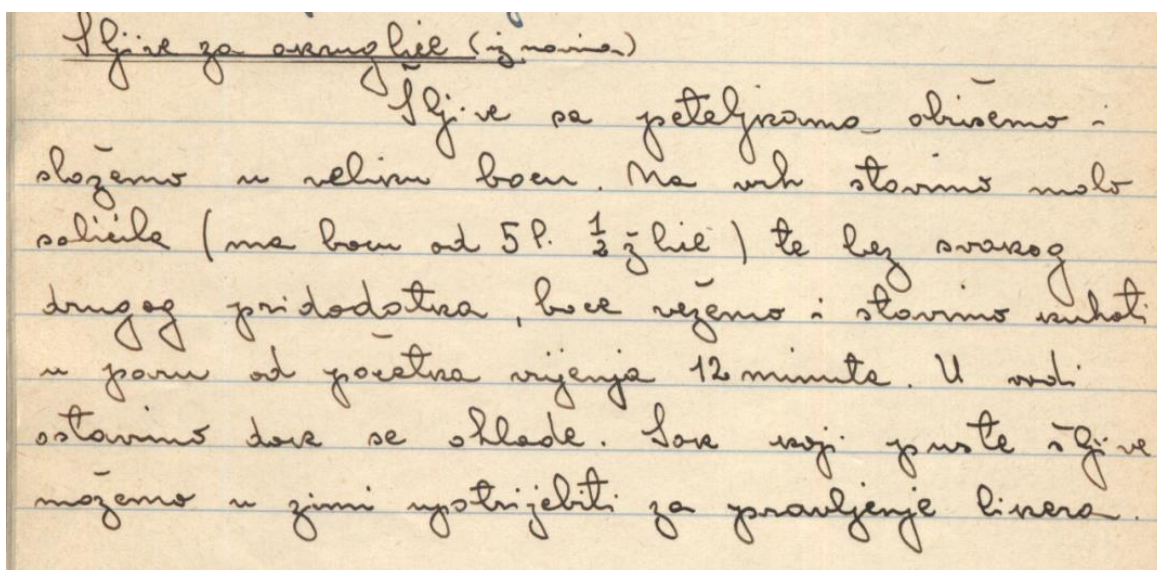 Šljive za okruglice (iz novina)
Šljive sa peteljkama obrišemo i
složemo u veliku bocu. Na vrh stavimo malo
salicila (na bocu od 5 l. ½ žlice) te bez svakog
drugog pridodatka, boce vežemo i stavimo kuhati
u paru od početka vrijenja 12 minuta. U vodi
ostavimo dok se ohlade. Sok koji puste šljive
možemo u zimi upotrijebiti za pravljenje likera.